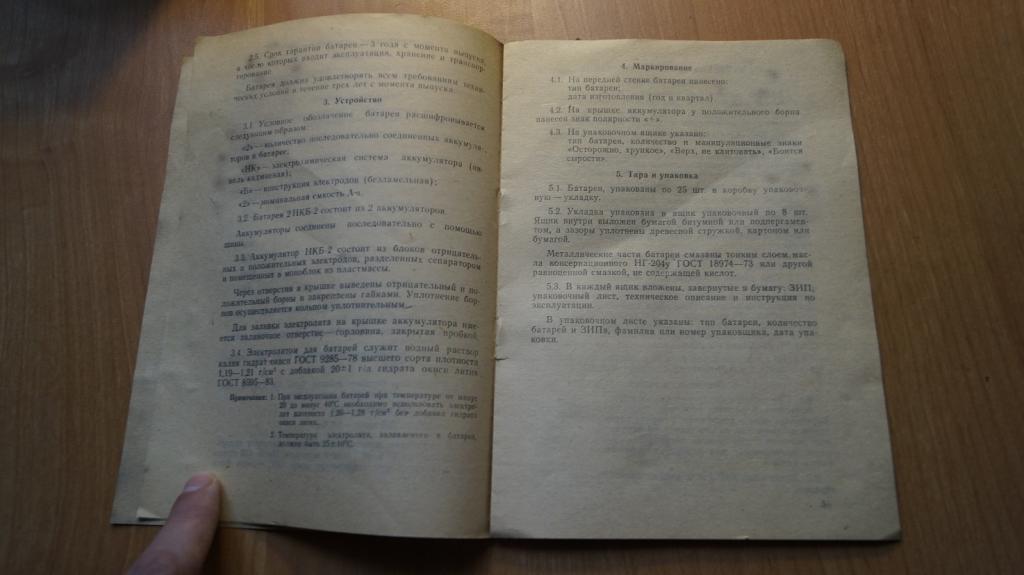 2.5. Срок гарантии батареи — 3 года с момента выпуска,
в число которых входит эксплуатация, хранение и транспор-
тирование.
Батарея должна удовлетворять всем требованиям техни-
ческих условий в течение трех лет с момента выпуска.
3. Устройство
3.1 Условное обозначение батареи расшифровывается
следующим образом:
«2» — количество последовательно соединенных аккумуля-
торов в батарее;
«НК» — электрохимическая система аккумулятора (ни-
кель-кадмиевая);
«Б» — конструкция электродов (безламельная);
«2» — номинальная емкость А·ч.
3.2. Батарея 2 НКБ-2 состоит из 2 аккумуляторов.
Аккумуляторы соединены последовательно с помощью
шины.
3.3. Аккумулятор НКБ-2 состоит из блоков отрицатель-
ных и положительных электродов, разделенных сепаратором
и помещенных в моноблок из пластмассы.
Через отверстия в крышке выведены отрицательный и по-
ложительный борны и закреплены гайками. Уплотнение бор-
нов осуществляется кольцом уплотнительным.
Для заливки электролита на крышке аккумулятора име-
ется заливочное отверстие — горловина, закрытая пробкой.
3.4. Электролитом для батарей служит водный раствор
калия гидрат окиси ГОСТ 9285—78 высшего сорта плотности
1,19—1,21 г/см³ с добавкой 20±1 г/л гидрата окиси лития
ГОСТ 8595—83.
Примечание: 1. При эксплуатации батарей при температуре от минус
20 до минус 40°С необходимо использовать электро-
лит плотности 1,26—1,28 г/см³ без добавки гидрата
окиси лития.
2. Температура электролита, заливаемого в батареи,
должна быть 25±10°С.
4. Маркирование
4.1. На передней стенке батареи нанесено:
тип батареи;
дата изготовления (год и квартал)
4.2. На крышке аккумулятора у положительного борна
нанесен знак полярности «+».
4.3. На упаковочном ящике указано:
тип батареи, количество и манипуляционные знаки
«Осторожно, хрупкое», «Верх, не кантовать», «Боится
сырости».
5. Тара и упаковка
5.1. Батареи, упакованы по 25 шт. в коробку упаковоч-
ную — укладку.
5.2. Укладка упакована в ящик упаковочный по 8 шт.
Ящик внутри выложен бумагой битумной или подпергамен-
том, а зазоры уплотнены древесной стружкой, картоном или
бумагой.
Металлические части батареи смазаны тонким слоем мас-
ла консервационного НГ-204у ГОСТ 18974—73 или другой
равноценной смазкой, не содержащей кислот.
5.3. В каждый ящик вложены, завернутые в бумагу: ЗИП,
упаковочный лист, техническое описание и инструкция по
эксплуатации.
В упаковочном листе указаны: тип батареи, количество
батарей и ЗИПа, фамилия или номер упаковщика, дата упа-
ковки.